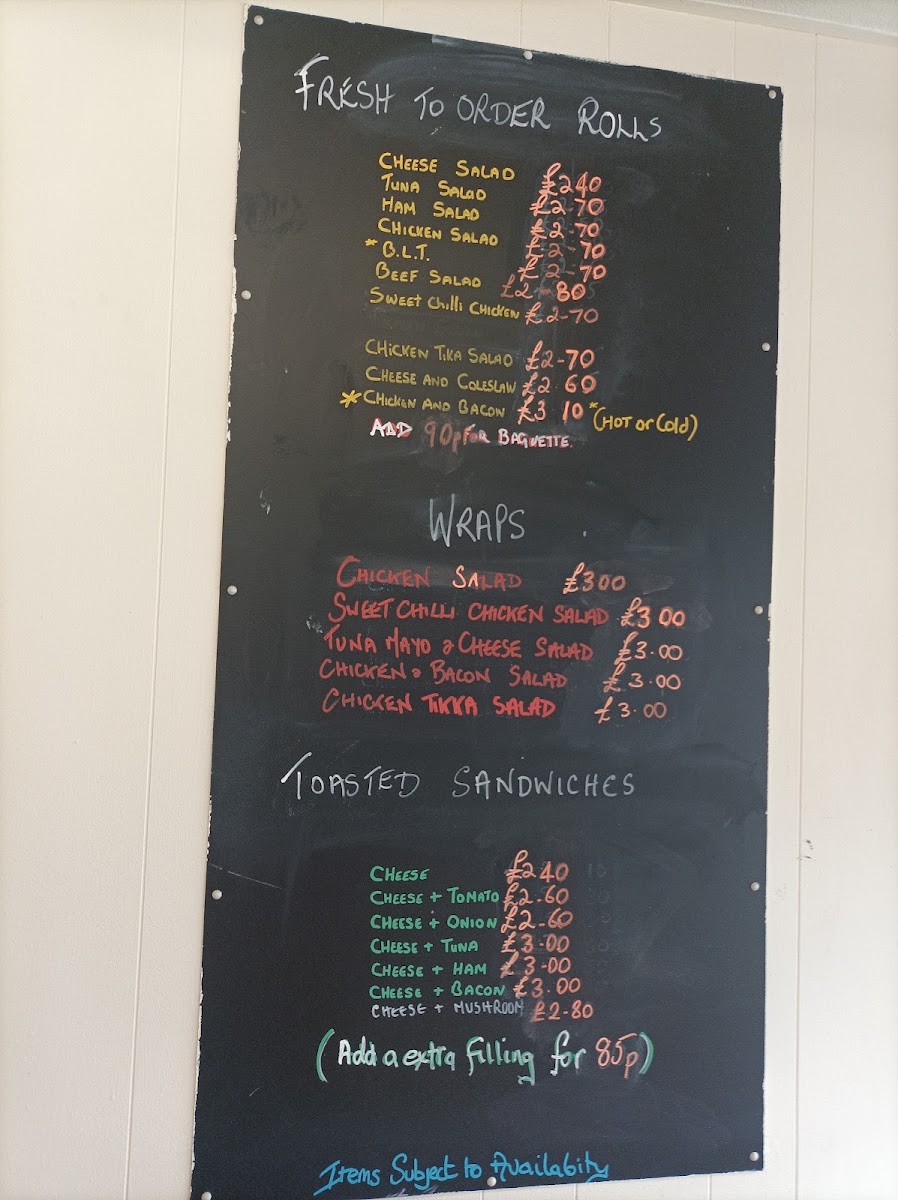 FRESH TO ORDER ROLLS
CHEESE SALAD £240
TUNA SALAD £2 70
HAM SALAD £2-70
CHICKEN SALAD £2-70
* B.L.T. £2-70
BEEF SALAD £2-80
SWEET Chilli CHICKEN £2-70
CHICKEN TIKA SALAD £2-70
CHEESE AND COLESLAW £2 60
* CHICKEN AND BACON £3 10 * (HOT or Cold)
ADD 90p FOR BAGUETTE.
WRAPS
CHICKEN SALAD £300
SWEET CHILLI CHICKEN SALAD £3 00
TUNA MAYO & CHEESE SALAD £3.00
CHICKEN & BACON SALAD £3.00
CHICKEN TIKKA SALAD £3.00
TOASTED SANDWICHES
CHEESE £240
CHEESE + TOMATO £2.60
CHEESE + ONION £2-60
CHEESE + TUNA £3-00
CHEESE + HAM £3-00
CHEESE + BACON £3.00
CHEESE + MUSHROOM £2-80
(Add a extra filling for 85p)
Items Subject to Availabity